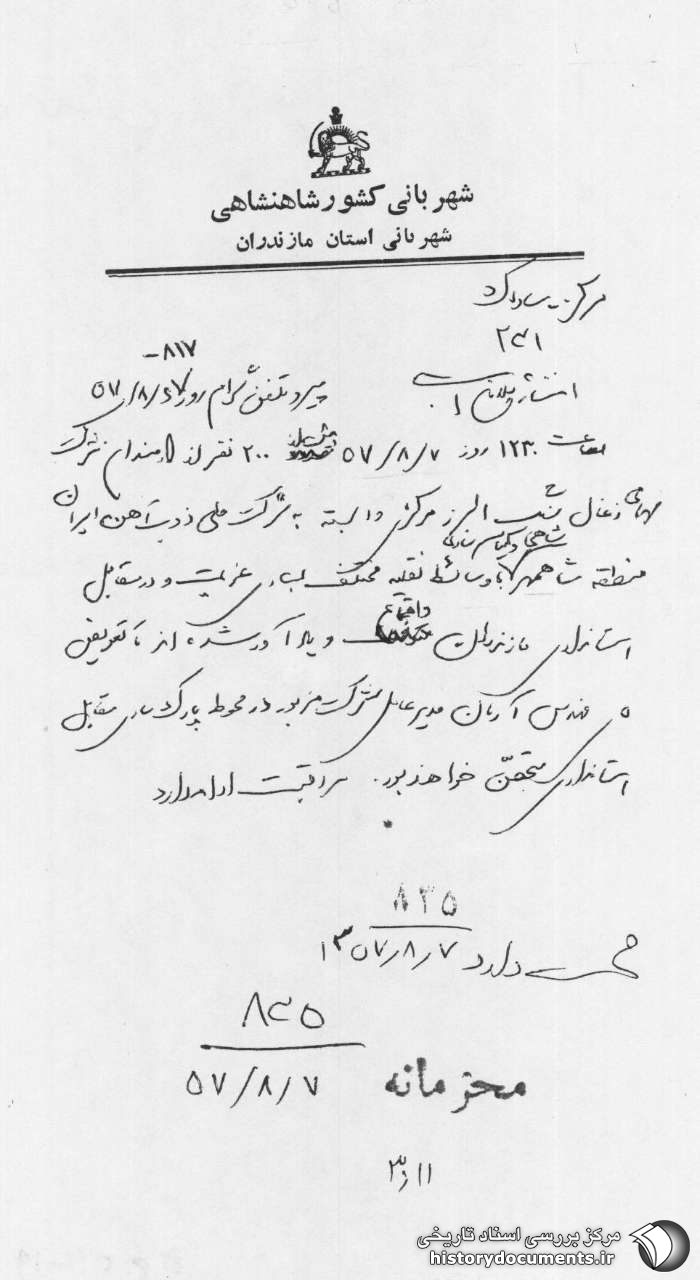 شهربانی کشور شاهنشاهی
شهربانی استان مازندران
مرکز ساواک
۲۳۱
-۸۱۷
پیرو تلفنگرام روز ۵۷/۸/
ساعت ۱۲۳۰ روز ۵۷/۸/۷ ۲۰۰ نفر از کارمندان شرکت
سهامی زغال سنگ البرز مرکزی وابسته به شرکت ملی ذوب آهن ایران
شاهی و
منطقه با وسائط نقلیه مختلف بساری عزیمت و در مقابل
اجتماع
استانداری مازندران و یادآور شده‌اند تا تعویض
مهندس آریان مدیر عامل شرکت مزبور در محوطه پارک ساری مقابل
استانداری متحصن خواهند بود. مراقبت ادامه دارد
۸۳۵
۱۳۵۷/۸/۷
۸۳۵
۵۷/۸/۷
محرمانه
۳٫۱۱
مرکز بررسی اسناد تاریخی
historydocuments.ir